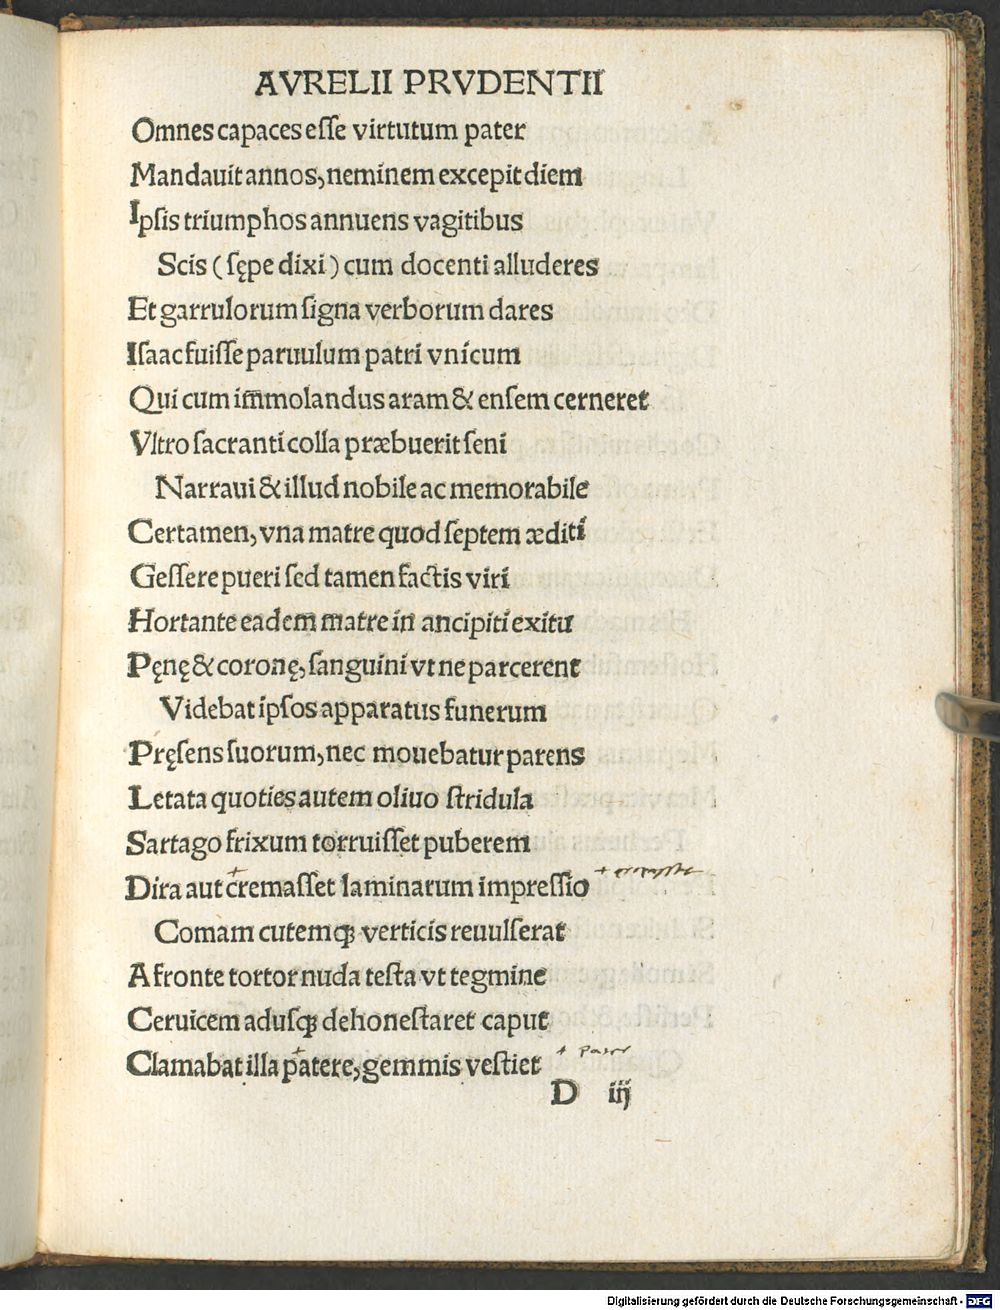 AVRELII PRVDENTII
Omnes capaces eſſe virtutum pater
Mandauit annos, neminem excepit diem
Ipſis triumphos annuens vagitibus
Scis (ſępe dixi) cum docenti alluderes
Et garrulorum ſigna verborum dares
Iſaac fuiſſe paruulum patri vnicum
Qui cum im̅molandus aram & enſem cerneret
Vltro ſacranti colla præbuerit ſeni
Narraui & illud nobile ac memorabile
Certamen, vna matre quod ſeptem æditi
Geſſere pueri ſed tamen factis viri
Hortante eadem matre in ancipiti exitu
Pęnę & coronę, ſanguini vt ne parcerent
Videbat ipſos apparatus funerum
Pręſens ſuorum, nec mouebatur parens
Letata quoties autem oliuo ſtridula
Sartago frixum torruiſſet puberem
Dira aut cremaſſet laminarum impreſſio +
+
Comam cutemqꝫ verticis reuulſerat
A fronte tortor nuda teſta vt tegmine
Ceruicem aduſqꝫ dehoneſtaret caput
Clamabat illa patere, gemmis veſtiet +
+
D iij
Digitalisierung gefördert durch die Deutsche Forschungsgemeinschaft - DFG